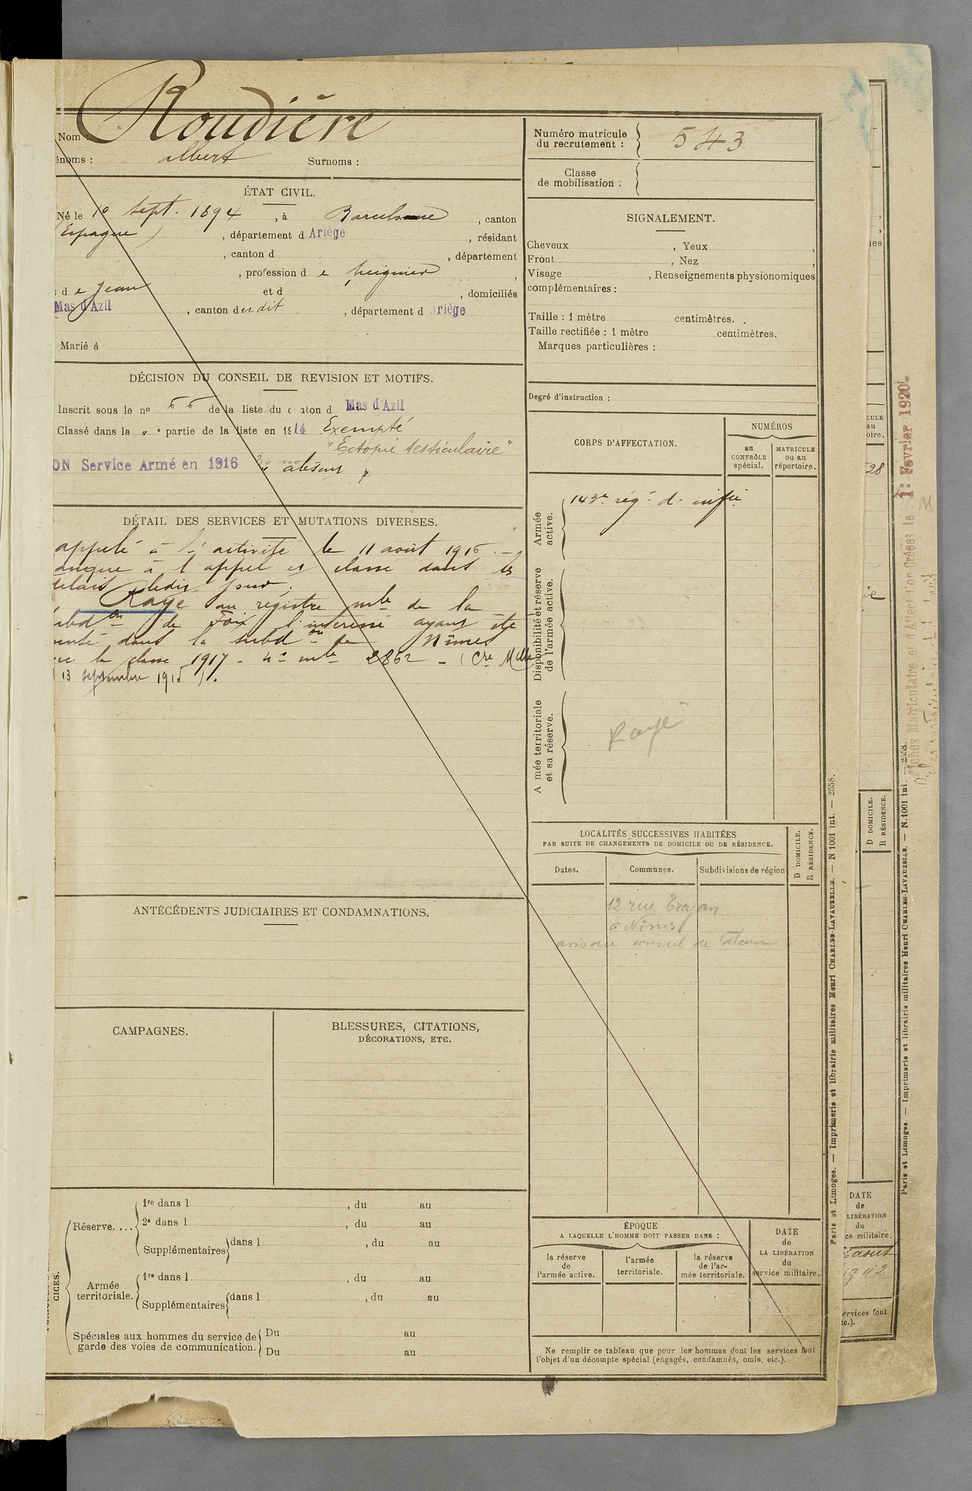 Roudière
Nom :
énoms : Albert Surnoms :
ÉTAT CIVIL.
Né le 10 Sept. 1894, à Barcelone, canton
(Espagne), département d Ariège, résidant
, canton d , département
, profession d e peignier,
d e Jean et d , domiciliés
Mas d'Azil, canton dudit, département d Ariège
Marié à
DÉCISION DU CONSEIL DE REVISION ET MOTIFS.
Inscrit sous le no 66 de la liste du canton d Mas d'Azil
Classé dans la " partie de la liste en 1914 Exempté
"Ectopie testiculaire"
ON Service Armé en 1916 absent
DÉTAIL DES SERVICES ET MUTATIONS DIVERSES.
appelé à l'activité le 11 août 1916.
anque à l'appel et classé dans les
dudit jour.
Rayé au registre mle de la
subdon de Foix l'intéressé ayant été
dans la subdon de Nîmes
la classe 1917 - no mle 2862 - (Cre Melle
13 septembre 1916).
ANTÉCÉDENTS JUDICIAIRES ET CONDAMNATIONS.
CAMPAGNES.
BLESSURES, CITATIONS,
DÉCORATIONS, ETC.
Réserve....
1re dans l , du au
2e dans l , du au
Supplémentaires dans l , du au
Armée
territoriale.
1re dans l , du au
Supplémentaires dans l , du au
Spéciales aux hommes du service de
garde des voies de communication.
Du au
Du au
Numéro matricule
du recrutement : 543
Classe
de mobilisation :
SIGNALEMENT.
Cheveux , Yeux ,
Front , Nez ,
Visage , Renseignements physionomiques
complémentaires :
Taille : 1 mètre centimètres.
Taille rectifiée : 1 mètre centimètres.
Marques particulières :
Degré d'instruction :
CORPS D'AFFECTATION.
NUMÉROS
au
CONTRÔLE
spécial.
MATRICULE
ou au
répertoire.
Armée
active.
143e rég.t d'inf.ie
Disponibilité et réserve
de l'armée active.
A mée territoriale
et sa réserve.
Rayé
LOCALITÉS SUCCESSIVES HABITÉES
PAR SUITE DE CHANGEMENTS DE DOMICILE OU DE RÉSIDENCE.
Dates.
Communes.
Subdivisions de région
D DOMICILE.
R RÉSIDENCE.
12 rue Trajan
à Nîmes
ÉPOQUE
A LAQUELLE L'HOMME DOIT PASSER DANS :
la réserve
de
l'armée active.
l'armée
territoriale.
la réserve
de l'ar-
mée territoriale.
DATE
de
LA LIBÉRATION
du
service militaire.
Ne remplir ce tableau que pour les hommes dont les services font
l'objet d'un décompte spécial (engagés, condamnés, omis, etc.).
Paris et Limoges. — Imprimerie et librairie militaires Henri CHARLES-LAVAUZELLE. — N 1001 int. — 2558.
Paris et Limoges. — Imprimerie et librairie militaires Henri CHARLES-LAVAUZELLE. — N. 1001 int.
1er Février 1920
D DOMICILE.
R RÉSIDENCE.
DATE
de
LIBÉRATION
du
ce militaire.
août
ervices font
tc.).